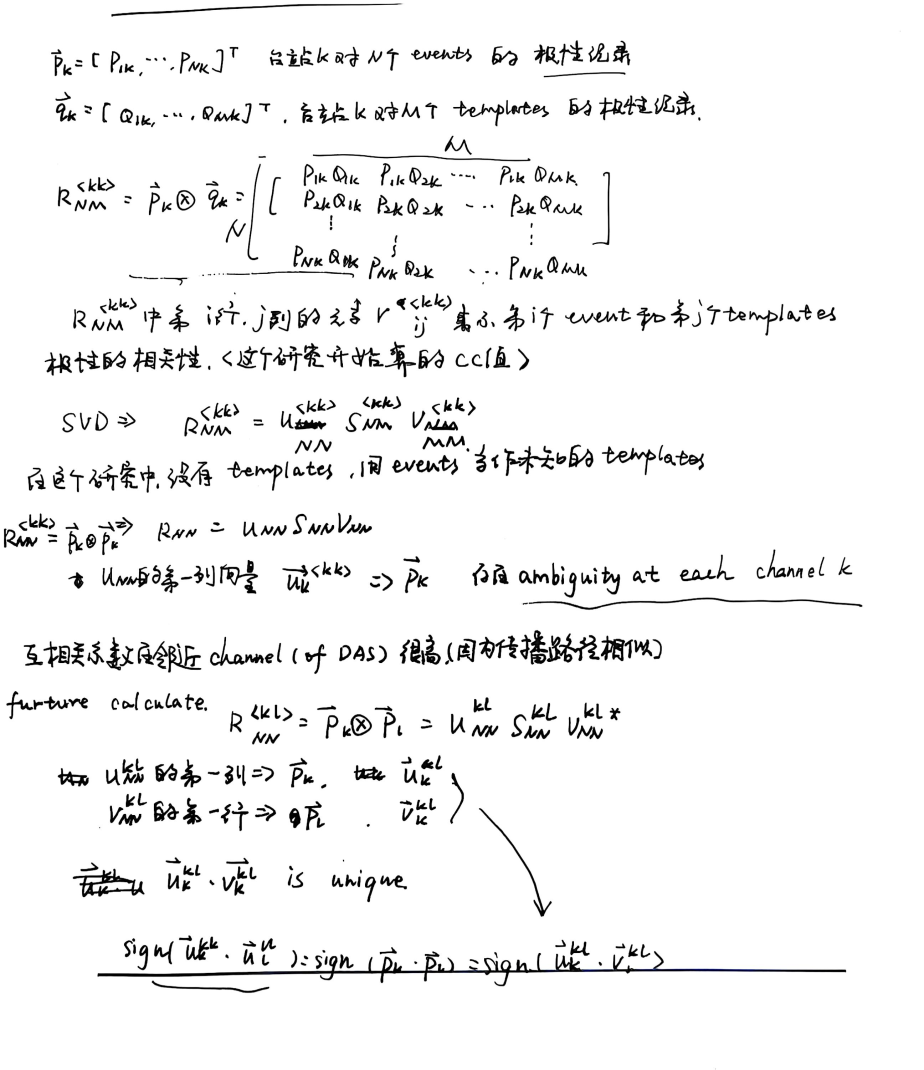 p⃗k = [ P1k, ..., PNk ]ᵀ 台站k对N个 events 的 极性纪录
q⃗k = [ Q1k, ..., QMk ]ᵀ, 台站k对M个 templates 的极性纪录.
M
R NM <kk> = p⃗k ⊗ q⃗k = N [ P1kQ1k P1kQ2k ···· P1kQMk
P2kQ1k P2kQ2k ··· P2kQMk
⋮ ⋮ ⋮
PNkQ1k PNkQ2k ··· PNkQMk ]
R NM <kk> 中第 i行, j列的元素 r ij <kk> 表示 第i个 event 和 第j个 templates
极性的相关性. <这个研究开始算的CC值>
SVD ⇒ R NM <kk> = U NN <kk> S NM <kk> V MM <kk>
在这个研究中, 没有 templates, 用 events 当作未知的 templates
R NN <kk> = p⃗k ⊗ p⃗k ⇒ R NN = U NN S NN V NN
U NN的第一列向量 u⃗k <kk> ⇒ p⃗k 存在 ambiguity at each channel k
互相关系数在邻近 channel (of DAS) 很高(因为传播路径相似)
furture calculate. R NN <kl> = P⃗k ⊗ P⃗l = U NN kl S NN kl V NN kl *
U NN kl 的第一列 => p⃗k. u⃗k kl
V NN kl 的第一行 => p⃗l. v⃗k kl
u⃗k kl · v⃗k kl is unique.
sign( u⃗k kk · u⃗l ll ) = sign ( p⃗k · p⃗l ) = sign ( u⃗k kl · v⃗ kl )